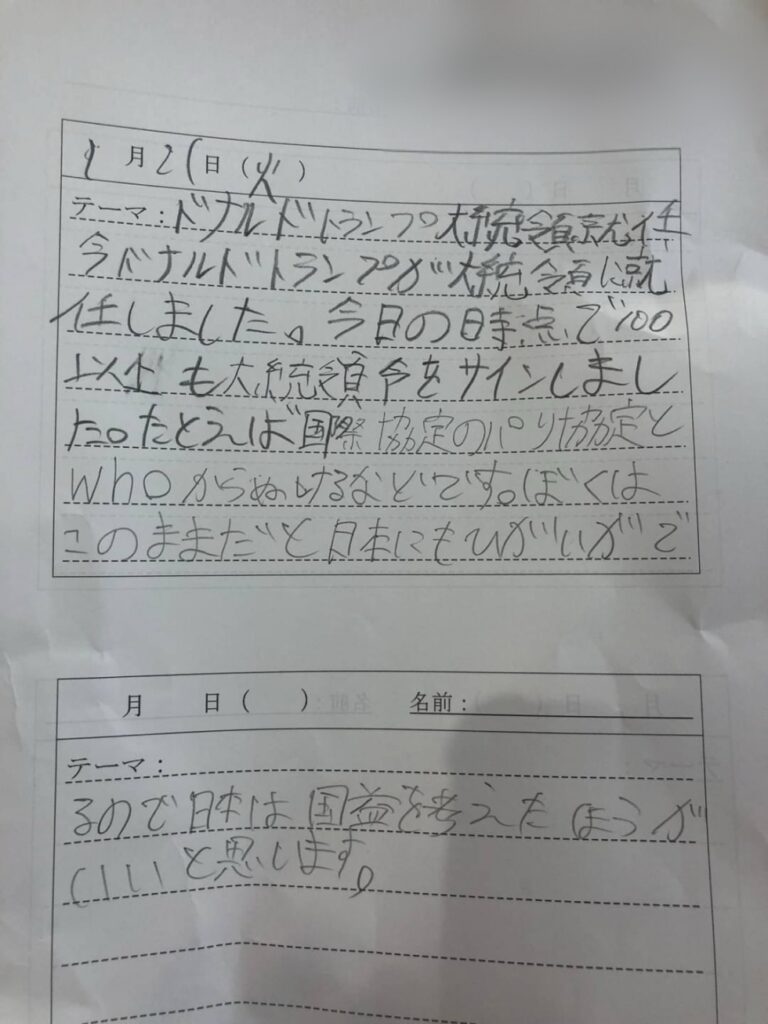 1月21日(火)
テーマ:ドナルドトランプ大統領就任
今ドナルドトランプが大統領に就
任しました。今日の時点で100
以上も大統領令をサインしまし
た。たとえば国際協定のパリ協定と
WhOからぬけるなどです。ぼくは
このままだと日本にもひがいがで
月 日( ) 名前:
テーマ:
るので日本は国益を考えたほうが
いいと思います。